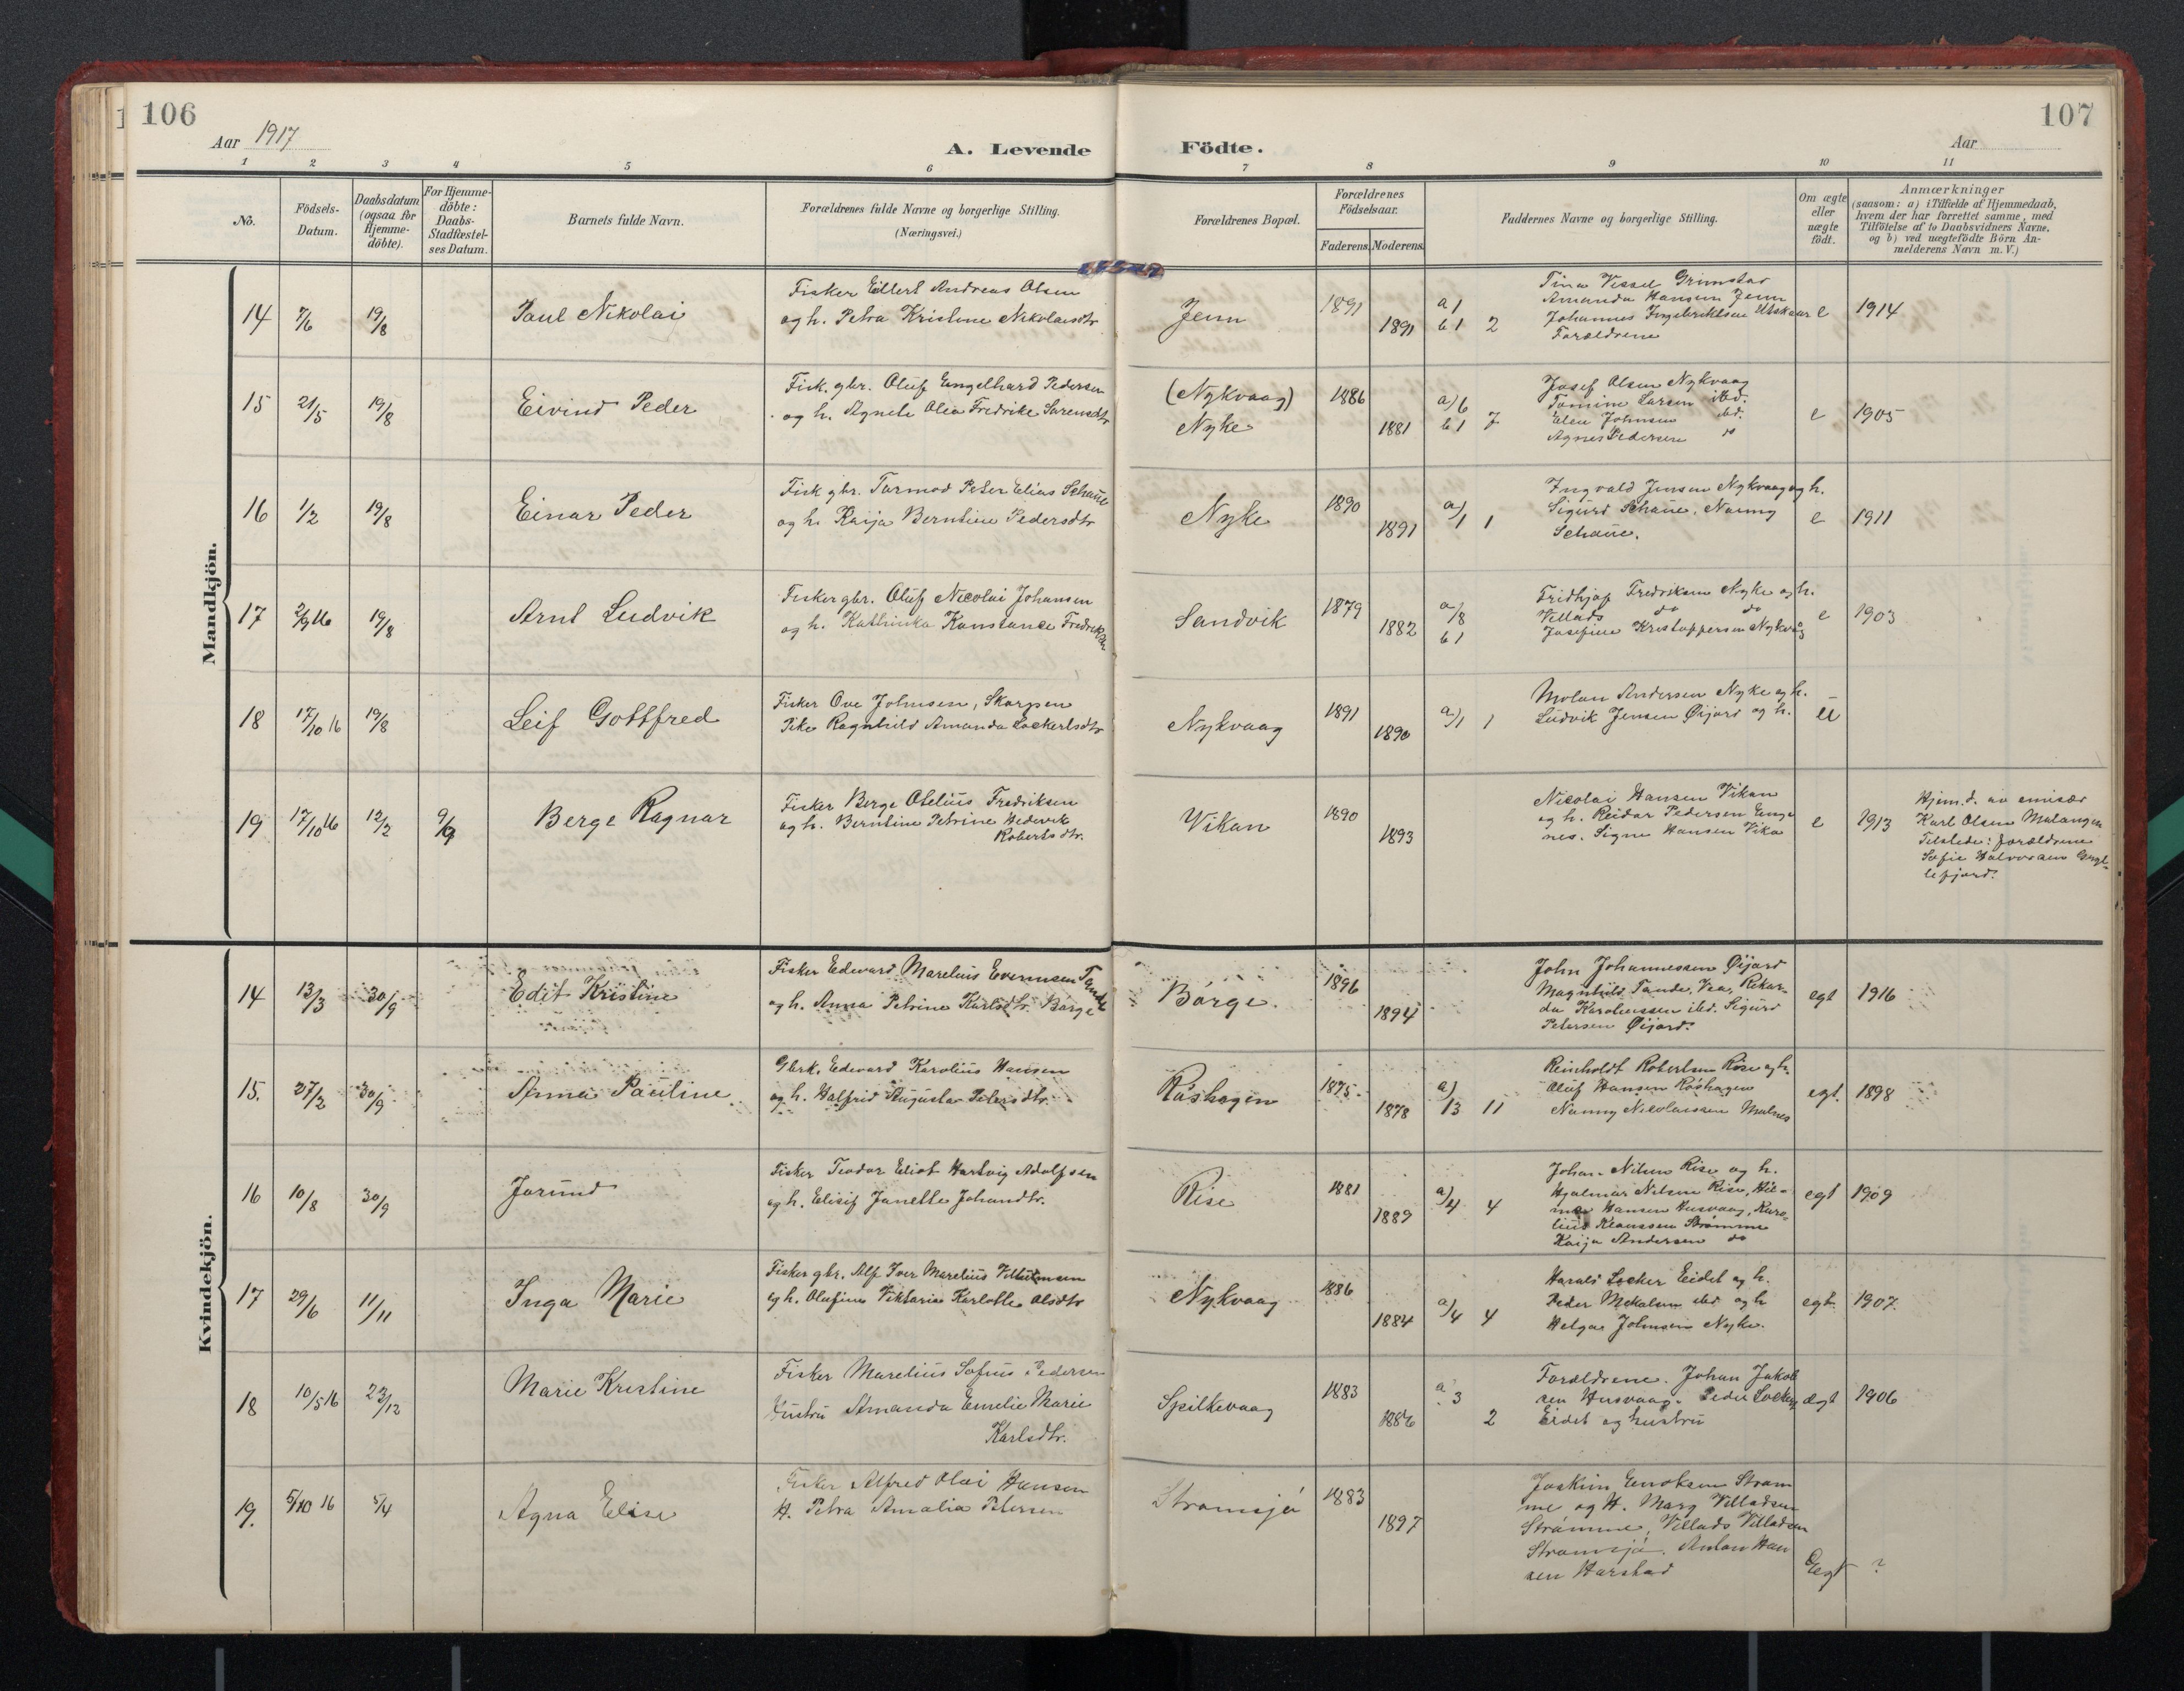 106
107
Aar 1917
A. Levende
Födte.
Aar
1 2 3 4 5 6 7 8 9 10 11
Nö.
Födsels-
Datum.
Daabsdatum
(ogsaa for
Hjemme-
döbte).
For Hjemme-
döbte:
Daabs-
Stadfæstel-
ses Datum.
Barnets fulde Navn.
Forældrenes fulde Navne og borgerlige Stilling.
(Næringsvei.)
Forældrenes Bopæl.
Forældrenes
Födselsaar.
Faderens. Moderens.
Faddernes Navne og borgerlige Stilling.
Om ægte
eller
uægte
födt.
Anmærkninger
(saasom: a) i Tilfælde af Hjemmedaab,
hvem der har forrettet samme, med
Tilföielse af to Daabsvidners Navne,
og b) ved uægtefödte Börn An-
melderens Navn m. V.)
Mandkjön.
14 7/6 19/8 Paul Nikolai
Fisker Eillert Andreas Olsen
og h. Petra Kristine Nikolaisdtr
Jenn 1891 1891 a 1 b 1 2
Tina Vissel Grimstad
Amanda Hansen Jenn
Johannes Ingebriktsen Utskaar
Forældrene
e 1914
15 21/5 19/8 Eivind Peder
Fisk. gbr. Oluf Engelhard Pedersen
og h. Agnete Olea Fredrike Sørensdtr
(Nykvaag)
Nyke
1886 1881 a) 6 b 1 7
Josef Olsen Nykvaag
Tomine Larsen ibd.
Elen Johnsen ibd.
Agnes Pedersen do
e 1905
16 1/2 19/8 Einar Peder
Fisk gbr. Tormod Peter Elias Schaue
og h. Kaija Berntine Pedersdtr
Nyke 1890 1891 a) 1 1
Ingvald Jensen Nykvaag og h.
Sigurd Schaue, Nanny
Schaue.
e 1911
17 2/9 16 19/8 Arnt Ludvik
Fisker gbr. Oluf Nicolai Johansen
og h. Kathinka Konstanse Fredriksen
Sandvik 1879 1882 a/8 b 1
Fridhjof Fredriksen Nyke og h.
Villads do do
Josefine Kristoffersen Nykvåg
e 1903
18 17/10 16 19/8 Leif Gottfred
Fisker Ove Johnsen, Skarpen
Pike Ragnhild Amanda Lockertsdtr
Nykvaag 1891 1890 a) 1 1
Molan Andersen Nyke og h.
Ludvik Jensen Øijord og h.
u
19 17/10 16 12/2 9/9 Berge Ragnar
Fisker Berge Otelius Fredriksen
og h. Berntine Petrine Hedevik
Robertsdtr.
Vikan 1890 1893
Nicolai Hansen Vikan
og h. Reidar Pedersen Enge
nes. Signe Hansen Vika
e 1913
Hjem.d. av emisær
Karl Olsen Malangen
Tilstede: forældrene
Sofie Halvorsen
Kvindekjön.
14 13/3 30/9 Edit Kristine
Fisker Edward Marelius Evensen Tande
og h. Anna Petrine Karlsdtr. Børge
Börge. 1896 1894
John Johannessen Øijord
Magnhild Tande, Vea, Rikar-
da Karoliussen ibd. Sigurd
Petersen Øijord.
egt 1916
15. 27/2 30/9 Anna Pauline
Gbrk. Edward Karolius Hansen
og h. Halfrid Augusta Petersdtr.
Röshagen 1875 1878 a) 13 11
Reinholdt Robertsen Rise og h.
Oluf Hansen Röshagen
Nanny Nicolaissen Malnes
egt. 1898
16 10/8 30/9 Jorund
Fisker Teodor Eliot Hartvig Adolfsen
og h. Elisif Janette Johandtr.
Rise 1881 1889 a) 4 4
Johan Nilsen Rise og h.
Hjalmar Nilsen Rise, Hil-
ma Hansen Husvaag, Karo-
lius Klaussen Strömme
Kaija Andersen do
egt 1909
17 29/6 11/11 Inga Marie
Fisker gbr. Alf Iver Marelius Vilhelmsen
og h. Olufine Viktoria Karlotte Olsdtr
Nykvaag 1886 1884 a) 4 4
Harald Locker Eidet og h.
Peder Mikalsen ibd og h
Helga Johnsen Nyke.
egt. 1907.
18 10/5 16 23/12 Marie Kristine
Fisker Marelius Sofus Pedersen
Hustru Amanda Emelie Marie
Karlsdtr.
Spilkevaag 1883 1886 a. 3 2
Forældrene. Johan Jakob
sen Husvaag. Peder Locker
Eidet og hustru
ægt 1906
19. 5/10 16 5/4 Agna Elise
Fisker Alfred Olai Hansen
H. Petra Amalia Petersen
Strömsjö 1883 1897
Joakim Enoksen Ström
me og H. Marg Villadsen
Strömme, Villads Villadsen
Strömsjö. Anton Han
sen Harstad
Oegt ?